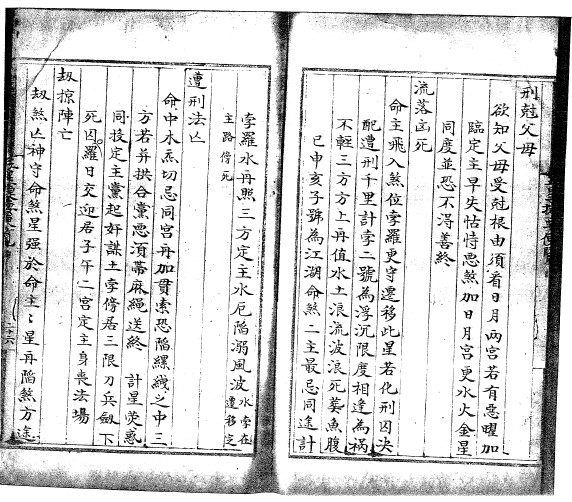 刑尅父母
欲知父母受尅根由須看日月兩宫若有惡曜加
臨定主早失怙恃惡煞加日月宫更水火金星
同度並恐不得善終
流落凶死
命主飛入煞位孛羅更守遷移此星若化刑囚决
配遭刑千里計孛二號為浮沉限度相逢為禍
不輕三方方上再值水土浪流波浪死葬魚腹
巳申亥子號為江湖命煞二主最忌同途計
孛羅水再照三方定主水厄陷溺風波水孛在遷移定
主路傍死
遭刑法亡
命中木炁切忌同宫再加貫索恐陷縲絏之中三
方若并拱合黨惡湏帶麻繩送終 計星熒惑
同投定主黨起奸謀土孛傍居三限刀兵劍下
死囚羅日交迎居子午二宫定主身喪法場
刼掠陣亡
刼煞亡神守命煞星强於命主〻星再陷煞方途
二十六